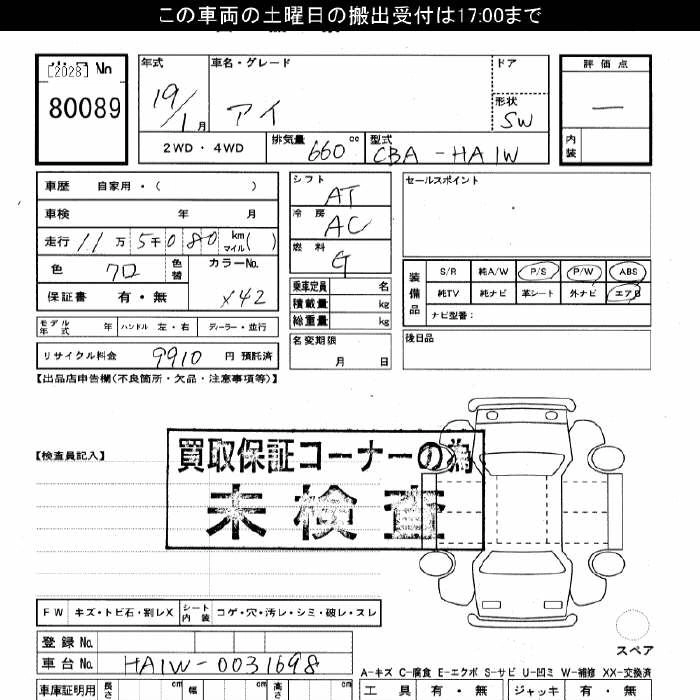 この車両の土曜日の搬出受付は17:00まで
[2028] No
80089
年式 車名・グレード ドア 評価点
19/1月 アイ 形状 SW —
2WD・4WD 排気量 660 cc 型式 CBA-HA1W 内装
車歴 自家用・( )
車検 年 月
走行 11万5千080 km マイル( )
色 クロ 色替 カラーNo.
保証書 有・無 X42
モデル年式 年 ハンドル 左・右 ディーラー・並行
リサイクル料金 9910 円 預託済
シフト AT
冷房 AC
燃料 G
乗車定員 名
積載量 kg
総重量 kg
名変期限
月 日
セールスポイント
装備品 S/R 純A/W P/S P/W ABS
純TV 純ナビ 革シート 外ナビ エアB
ナビ型番:
後日品
【出品店申告欄(不良箇所・欠品・注意事項等)】
【検査員記入】
買取保証コーナーの為
未検査
FW キズ・トビ石・割レX シート内装 コゲ・穴・汚レ・シミ・破レ・スレ
登録No.
車台No. HA1W-0031698
スペア
A-キズ C-腐食 E-エクボ S-サビ U-凹ミ W-補修 XX-交換済
車庫証明用 長さ cm 幅 cm 高さ cm 工具 有・無 ジャッキ 有・無